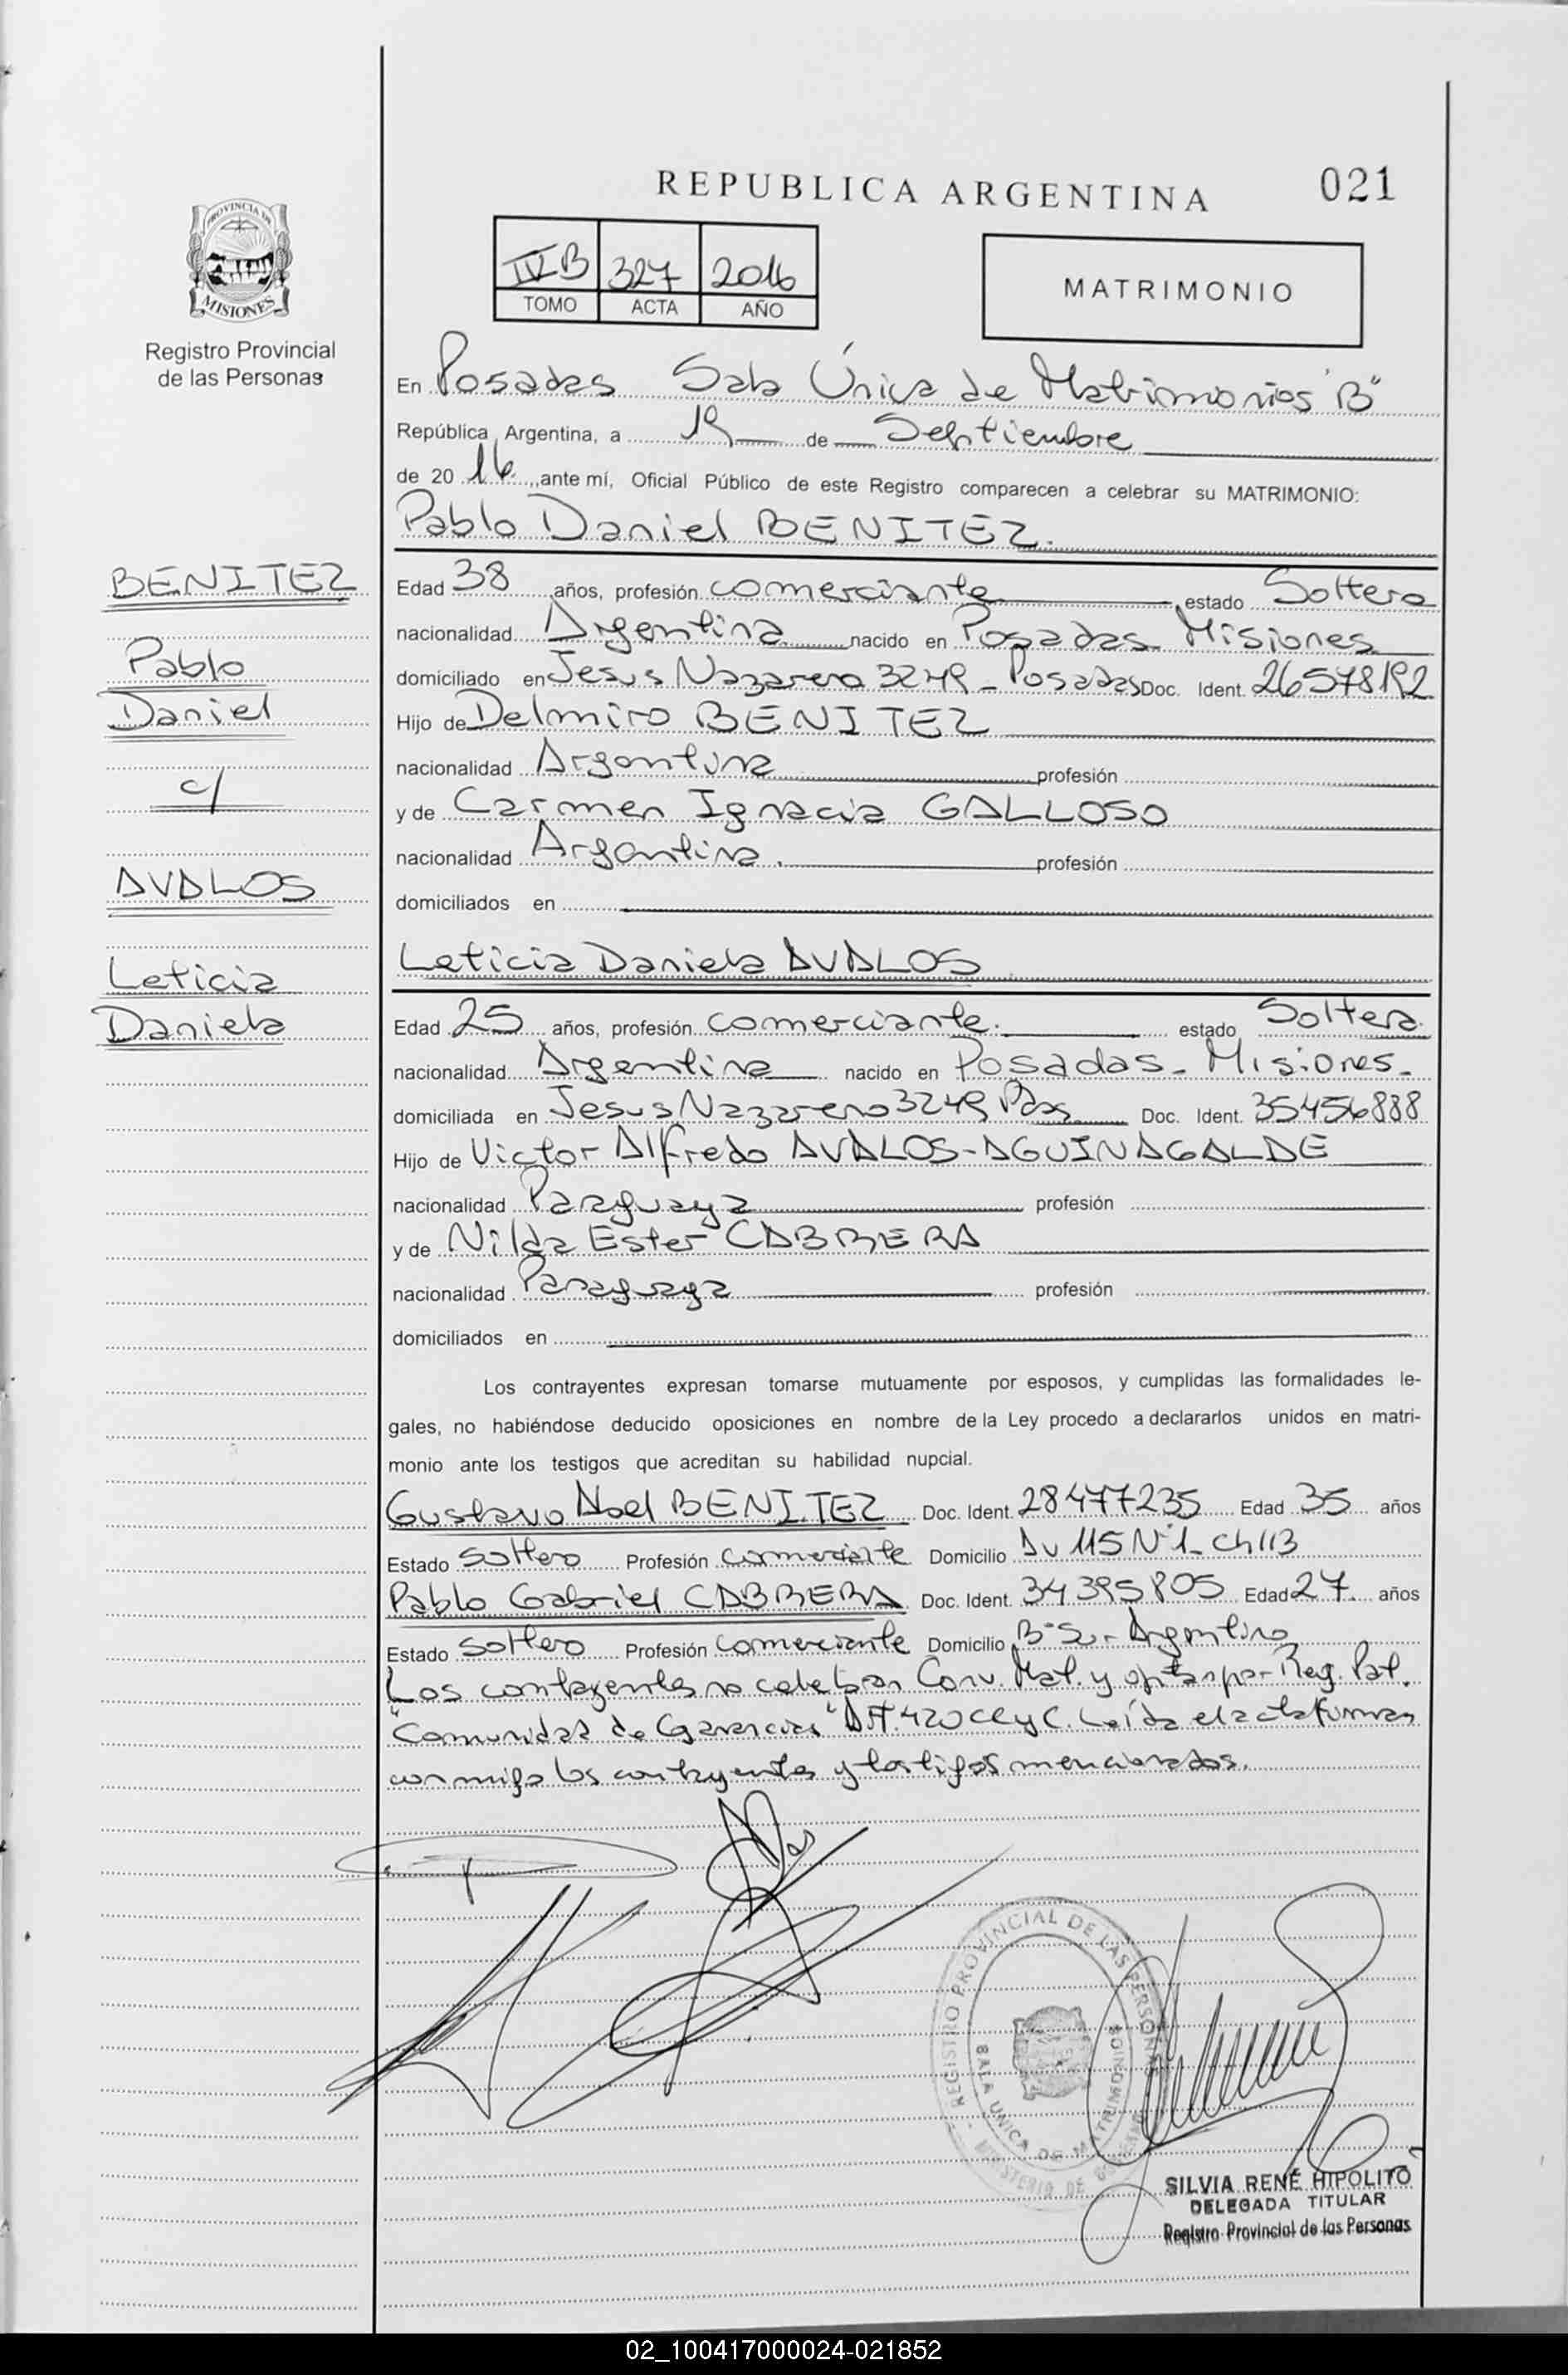 REPUBLICA ARGENTINA
021
PROVINCIA DE
MISIONES
Registro Provincial
de las Personas
IV B 327 2016
TOMO ACTA AÑO
MATRIMONIO
En Posadas Sala Única de Matrimonios "B"
República Argentina, a 19 de Septiembre
de 20 16 ,,ante mí, Oficial Público de este Registro comparecen a celebrar su MATRIMONIO:
Pablo Daniel BENITEZ.
BENITEZ
Pablo
Daniel
c/
AVALOS
Leticia
Daniela
Edad 38 años, profesión comerciante estado Soltero
nacionalidad Argentina nacido en Posadas Misiones
domiciliado en Jesus Nazareno 3249 - Posadas Doc. Ident. 26578192
Hijo de Delmiro BENITEZ
nacionalidad Argentina profesión
y de Carmen Ignacia GALLOSO
nacionalidad Argentina. profesión
domiciliados en
Leticia Daniela AVALOS
Edad 25 años, profesión comerciante. estado Soltera
nacionalidad Argentina nacido en Posadas - Misiones -
domiciliada en Jesus Nazareno 3249 Pdas Doc. Ident. 35456888
Hijo de Victor Alfredo AVALOS-AGUINAGALDE
nacionalidad Paraguaya profesión
y de Nilda Ester CABRERA
nacionalidad Paraguaya profesión
domiciliados en
Los contrayentes expresan tomarse mutuamente por esposos, y cumplidas las formalidades le-
gales, no habiéndose deducido oposiciones en nombre de la Ley procedo a declararlos unidos en matri-
monio ante los testigos que acreditan su habilidad nupcial.
Gustavo Noel BENITEZ Doc. Ident. 28477235 Edad 35 años
Estado Soltero Profesión Comerciante Domicilio Av 115 N°1 - Ch 113
Pablo Gabriel CABRERA Doc. Ident. 34395805 Edad 27 años
Estado Soltero Profesión Comerciante Domicilio B° Sur Argentino
Los contrayentes no celebran Conv. Mat. y optan por Reg. Pat.
"Comunidad de Ganancias" Art. 420 CCyC. Leída el acta firman
conmigo los contrayentes y testigos mencionados.
REGISTRO PROVINCIAL DE LAS PERSONAS
SALA UNICA DE MATRIMONIOS
MINISTERIO DE GOBIERNO
SILVIA RENÉ HIPOLITO
DELEGADA TITULAR
Registro Provincial de las Personas
02_100417000024-021852